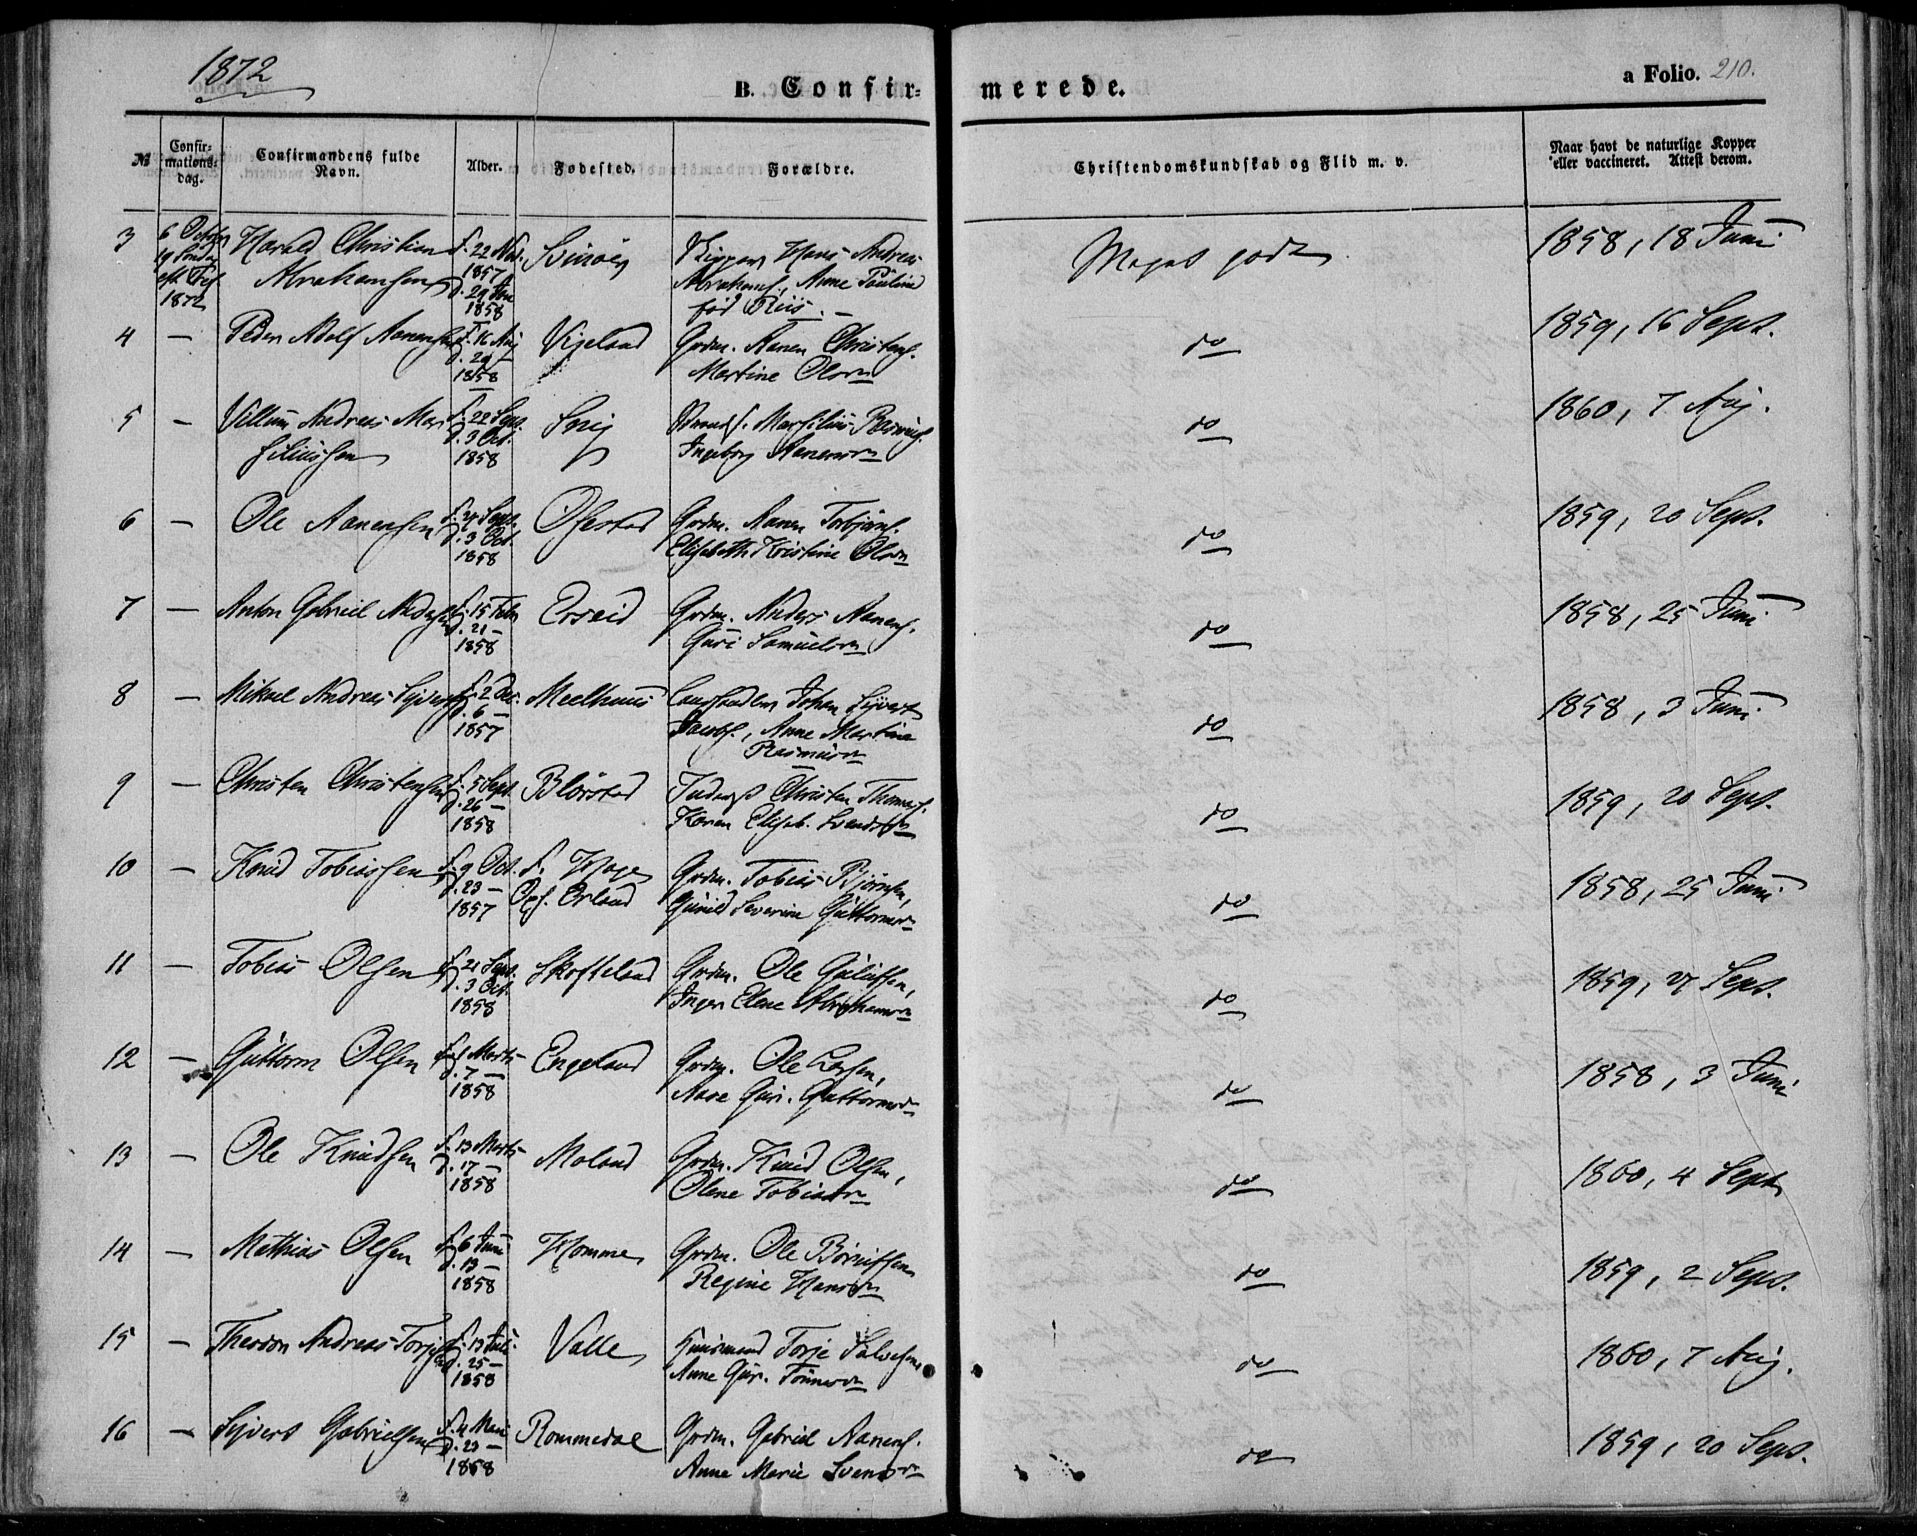 1872
B. Confirmerede.
a Folio. 210.
№
Confirmations-dag.
Confirmandens fulde Navn.
Alder.
Fødested.
Forældre.
Christendomskundskab og Flid m. v.
Naar havt de naturlige Kopper eller vaccineret. Attest derom.
3
6 October
19 Søndag
eft. Tref
1872
Harald Christian
Abrahamsen
f. 22 Nov.
1857
d.
1858
Svinøer
Skipper Hans Andreas
Abrahams., Anne Pauline
fød Riis.
Meget godt
1858, 18 Juni
4 —
Peder Adolf Aanensen
f. 16 Aug
d. 29 —
1858
Vigeland
Grdm. Aanen Christens.
Martine Olsdr
do
1859, 16 Sept.
5 —
Villum Andreas Mar
siliussen
f. 22 Sept.
d. 3 Oct.
1858
Snig
Marsilius
Ingeborg Aanensdr
do
1860, 7 Aug.
6 —
Ole Aanensen
Sept.
d. 3 Oct.
1858
Ofestad
Grdm. Aanen Torbjørns.
Elisabeth Kristine Olsdr
do
1859, 20 Sept.
7 —
Anton Gabriel Andersen
f. 15 Febr
d. 21 —
1858
Erseid
Grdm. Anders Aanens.
Guri Samuelsdr
do
1858, 25 Juni
8 —
Mikael Andreas
f. 2 Dec.
d. 6 —
1857
Meelhuus
Johan Sijvert
Jacobs., Anne Martine
Rasmusdr
do
1858, 3 Juni
9 —
Christen Christensen
f. 5 Sept.
d. 26 —
1858
Blørstad
Inderst Christen Thomas.
Karen Elisab. Svendsdr
do
1859, 20 Sept.
10 —
Knud Tobiassen
f. 9 Oct.
d. 23 —
1857
f. Hage
Opf. Erland
Grdm. Tobias Bjørnsen,
Gunild Severine Guttormsdr
do
1858, 25 Juni
11 —
Tobias Olsen
f. 21 Sept.
d. 3 Oct.
1858
Skofteland
Grdm. Ole Guliksen,
Inger Elene Abrahamsdr
do
1859, 27 Sept.
12 —
Guttorm Olsen
f. 1 Marts
d. 7 —
1858
Engeland
Grdm. Ole Larsen,
Aase Gur. Guttormsdr
do
1858, 3 Juni
13 —
Ole Knudsen
f. 13 Marts
d. 17 —
1858
Moland
Grdm. Knud Olsen,
Olene Tobiasdr
do
1860, 4 Sept
14 —
Mathias Olsen
f. 6 Juni
d. 13 —
1858
Homme
Grdm. Ole Børuffsen
Regine Hansdr
do
1859, 2 Sept.
15 —
Theodor Andreas Torjesen
f. 13 Juli
d. 25 —
1858
Valle
Huusmand Torje Salvesen
Anne Gur. Tønnesdr
do
1860, 7 Aug.
16 —
Sijvert Gabrielsen
f. 4 Mai
d. 23 —
1858
Rommedal
Grdm. Gabriel Aanens.
Anne Marie Svensdr
do
1859, 20 Sept.